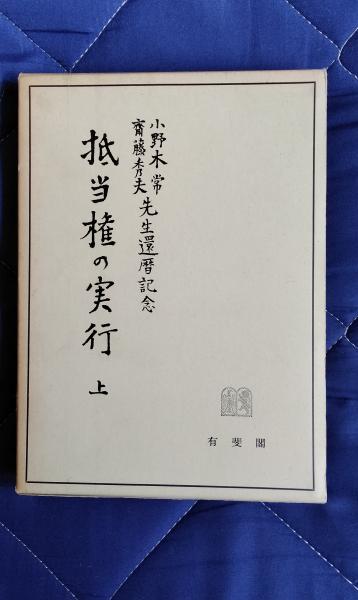 小野木常
齋藤秀夫 先生還暦記念
抵当権の実行 上
有斐閣